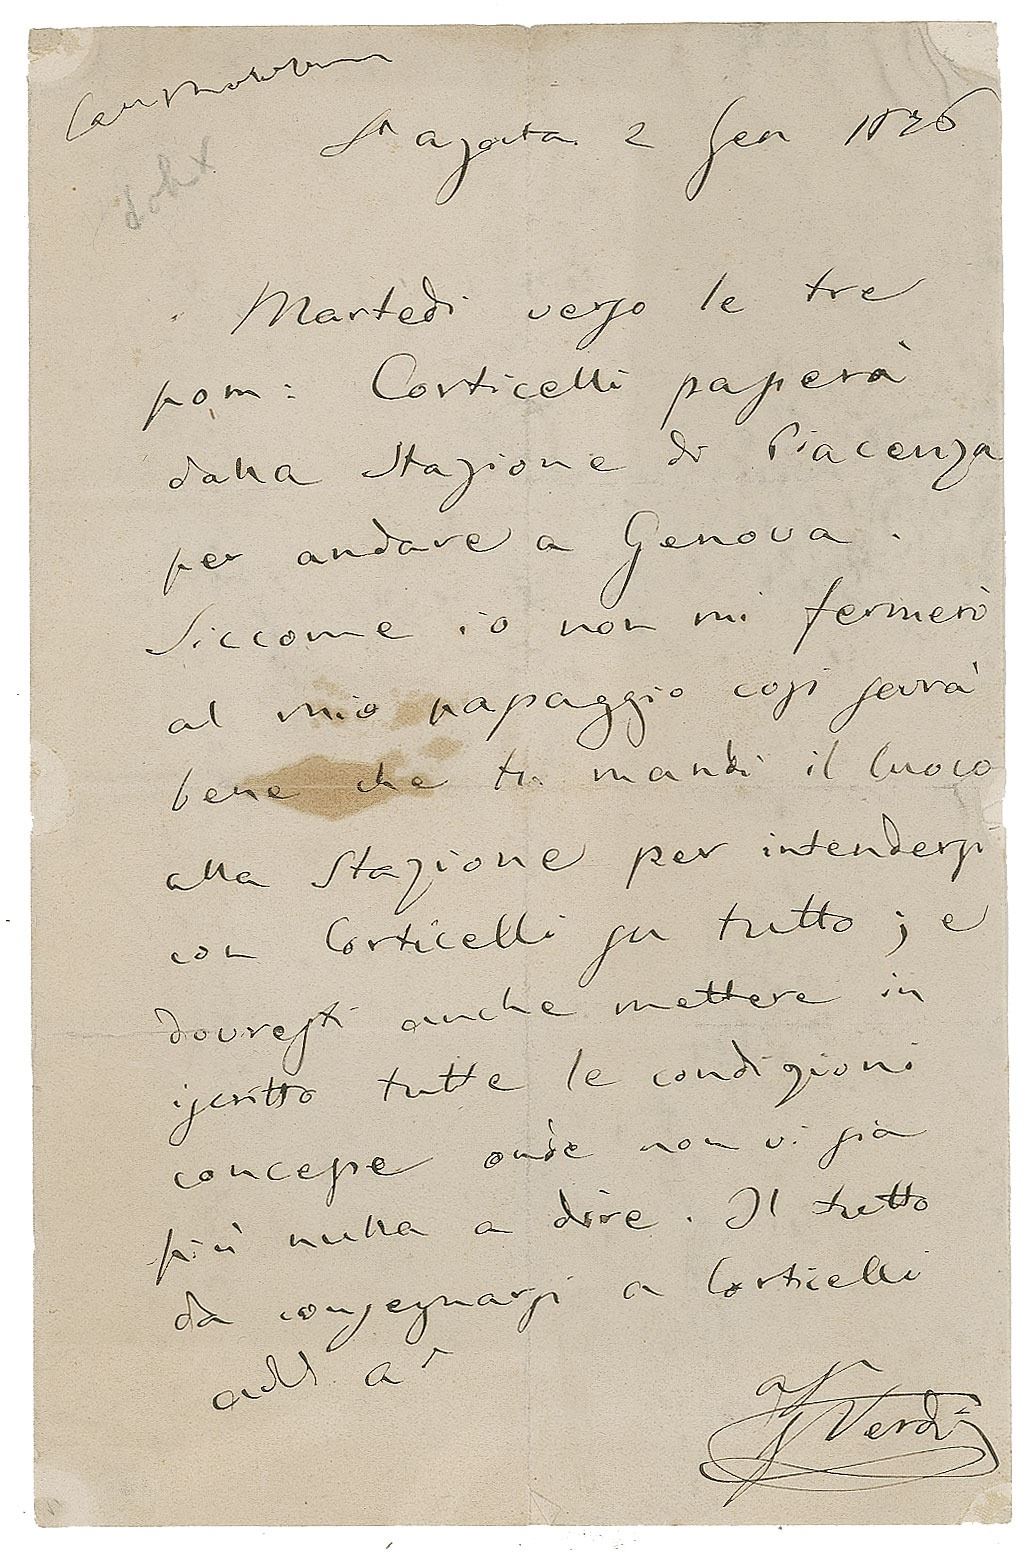 St Agata 2 Gen 1876
Martedi verso le tre
pom: Corticelli passerà
dalla Stazione di Piacenza
per andare a Genova.
Siccome io non mi fermerò
al mio passaggio così sarà
bene che tu mandi il cuoco
alla Stazione per intendersi
con Corticelli su tutto; e
dovresti anche mettere in
iscritto tutte le condizioni
concesse onde non vi sia
più nulla a dire. Il tutto
da consegnarsi a Corticelli
add.
G Verdi